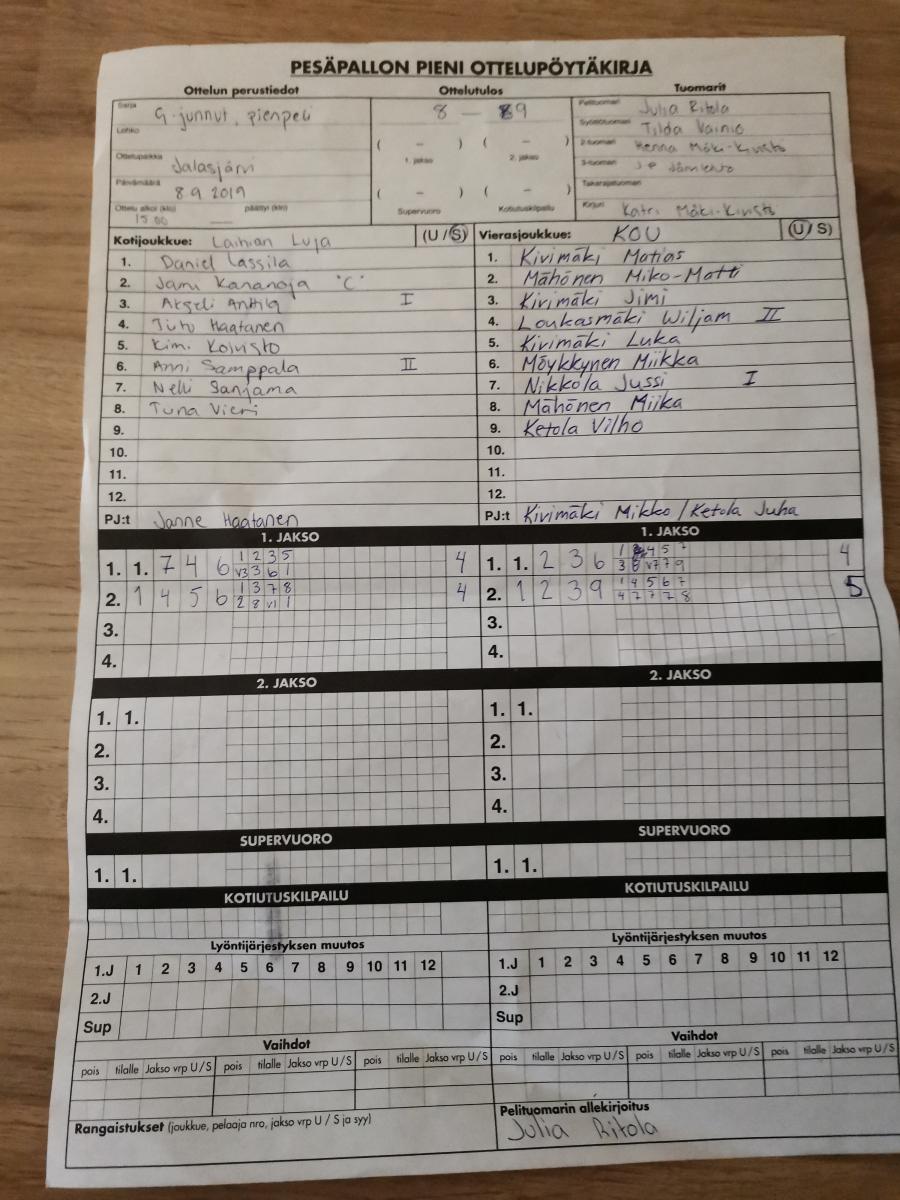 PESÄPALLON PIENI OTTELUPÖYTÄKIRJA
Ottelun perustiedot Ottelutulos Tuomarit
Sarja G-junnut, pienpeli
Lohko
Ottelupaikka Jalasjärvi
Päivämäärä 8.9.2019
Ottelu alkoi (klo) 15.00 päättyi (klo) —
8 — 9
( – ) ( – )
1. jakso 2. jakso
( – ) ( – )
Supervuoro Kotiutuskilpailu
Pelituomari Julia Ritola
Syöttötuomari Tilda Vainio
2-tuomari Henna Mäki-Kivistö
3-tuomari JP
Takarajatuomari
Kirjuri Katri Mäki-Kivistö
Kotijoukkue: Laihian Luja (U/S)
1. Daniel Lassila
2. Jami Kananoja "C"
3. Akseli Anttila I
4. Juho Haatanen
5. Kimi Koivisto
6. Anni Samppala II
7. Nelli Sanjama
8. Tuna Vieri
9.
10.
11.
12.
PJ:t Janne Haatanen
Vierasjoukkue: KOU (U/S)
1. Kivimäki Matias
2. Mähönen Miko-Matti
3. Kivimäki Jimi
4. Loukasmäki Wiljam II
5. Kivimäki Luka
6. Möykkynen Miikka
7. Nikkola Jussi I
8. Mähönen Miika
9. Ketola Vilho
10.
11.
12.
PJ:t Kivimäki Mikko / Ketola Juha
1. JAKSO
1. 1. 7 4 6 1 2 3 5 4
V3 3 6 1
2. 1 4 5 6 1 3 7 8 4
2 8 V1 1
3.
4.
1. JAKSO
1. 1. 2 3 6 1 4 5 7 4
3 8 V7 7 9
2. 1 2 3 9 1 4 5 6 7 5
4 7 7 7 8
3.
4.
2. JAKSO
1. 1.
2.
3.
4.
2. JAKSO
1. 1.
2.
3.
4.
SUPERVUORO
1. 1.
SUPERVUORO
1. 1.
KOTIUTUSKILPAILU
KOTIUTUSKILPAILU
Lyöntijärjestyksen muutos
1.J 1 2 3 4 5 6 7 8 9 10 11 12
2.J
Sup
Lyöntijärjestyksen muutos
1.J 1 2 3 4 5 6 7 8 9 10 11 12
2.J
Sup
Vaihdot
pois tilalle Jakso vrp U/S pois tilalle Jakso vrp U/S pois tilalle Jakso vrp U/S
Vaihdot
pois tilalle Jakso vrp U/S pois tilalle Jakso vrp U/S pois tilalle Jakso vrp U/S
Rangaistukset (joukkue, pelaaja nro, jakso vrp U / S ja syy)
Pelituomarin allekirjoitus
Julia Ritola